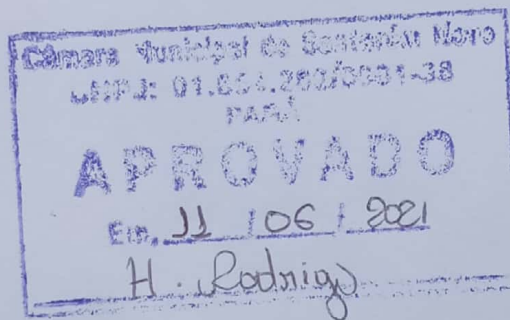 Câmara Municipal de Santarém Novo
CNPJ:
PARÁ
APROVADO
Em, 11 / 06 / 2021
H. Rodrig